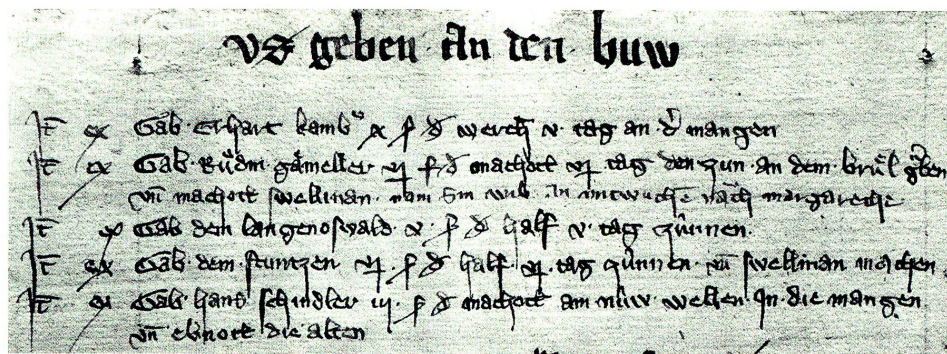 vs geben an den buw
It ex Gab Erhart kambͦ x ß d werch v tag an dͤ mangen
It ex Gab Rüdin gameller vj ß d machott vj tag den zun an dem brül
vn machott swellinan nam Sin wib an mitwuche nach margarethe
It ex Gab den langenoswald v ß d half v tag zünnen
It ex Gab dem stuntzen vj ß d half vj tag zünnen vn swellinan machen
It ex Gab hans schindler iij ß d machott am nüw wellen In die mangen
vn ebnott die alten